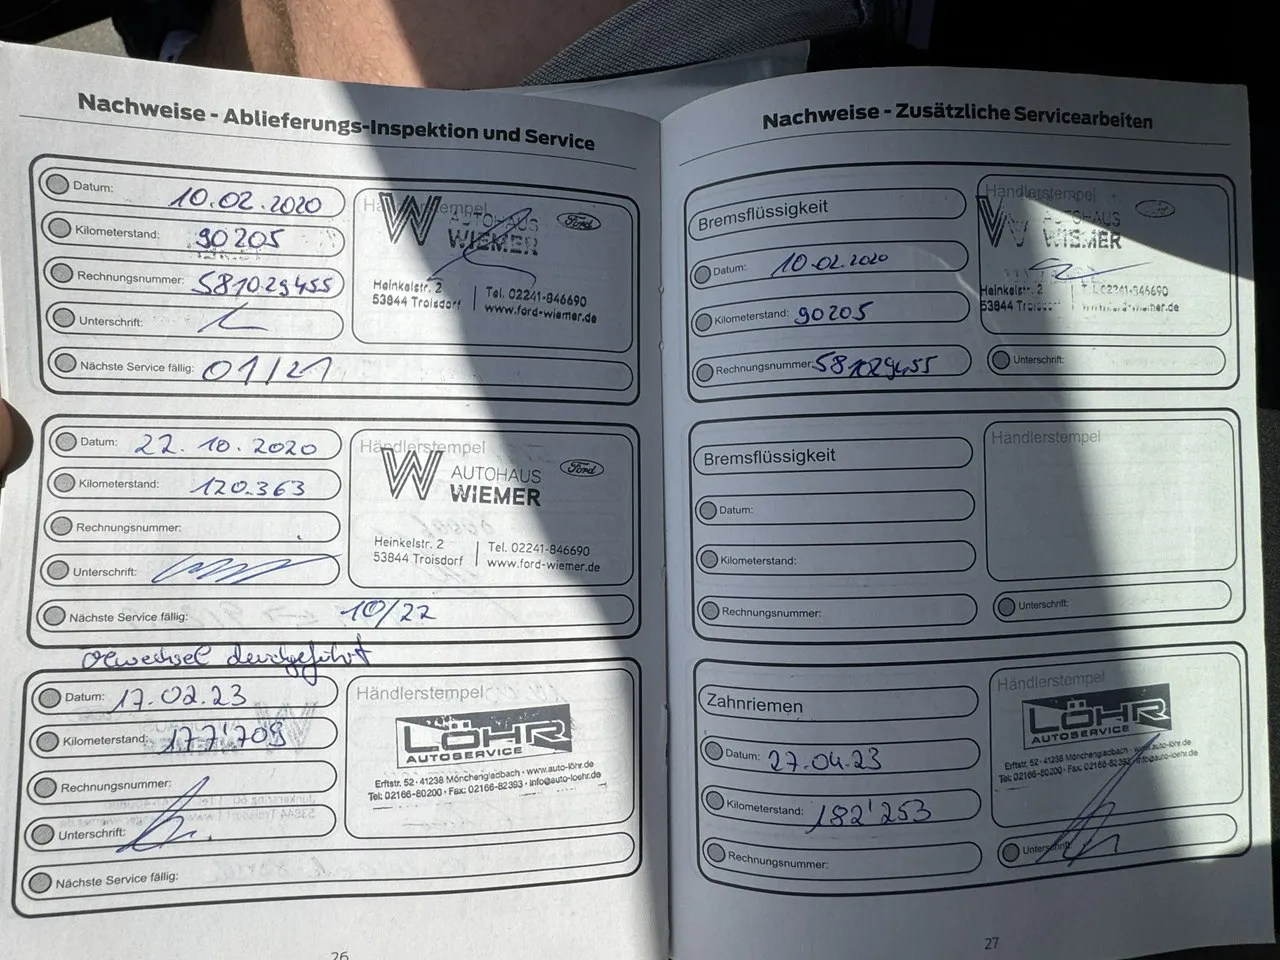 Nachweise - Ablieferungs-Inspektion und Service
Datum: 10.02.2020
Kilometerstand: 90205
Rechnungsnummer: 581029455
Unterschrift:
Nächste Service fällig: 01/21
Händlerstempel
W AUTOHAUS
WIEMER
Ford
Heinkelstr. 2
53844 Troisdorf
Tel. 02241-846690
www.ford-wiemer.de
Datum: 22.10.2020
Kilometerstand: 120.363
Rechnungsnummer:
Unterschrift:
Nächste Service fällig: 10/22
Händlerstempel
W AUTOHAUS
WIEMER
Ford
Heinkelstr. 2
53844 Troisdorf
Tel. 02241-846690
www.ford-wiemer.de
Ölwechsel durchgeführt
Datum: 17.02.23
Kilometerstand: 177'709
Rechnungsnummer:
Unterschrift:
Nächste Service fällig:
Händlerstempel
LÖHR
AUTOSERVICE
Erftstr. 52 · 41238 Mönchengladbach · www.auto-löhr.de
Tel: 02166-80200 · Fax: 02166-82393 · info@auto-loehr.de
26
Nachweise - Zusätzliche Servicearbeiten
Bremsflüssigkeit
Datum: 10.02.2020
Kilometerstand: 90205
Rechnungsnummer: 581029455
Händlerstempel
W AUTOHAUS
WIEMER
Heinkelstr. 2
53844 Troisdorf
Tel. 02241-846690
www.ford-wiemer.de
Unterschrift:
Bremsflüssigkeit
Datum:
Kilometerstand:
Rechnungsnummer:
Händlerstempel
Unterschrift:
Zahnriemen
Datum: 27.04.23
Kilometerstand: 182'253
Rechnungsnummer:
Händlerstempel
LÖHR
AUTOSERVICE
Erftstr. 52 · 41238 Mönchengladbach · www.auto-löhr.de
Tel: 02166-80200 · Fax: 02166-82393 · info@auto-loehr.de
Unterschrift:
27